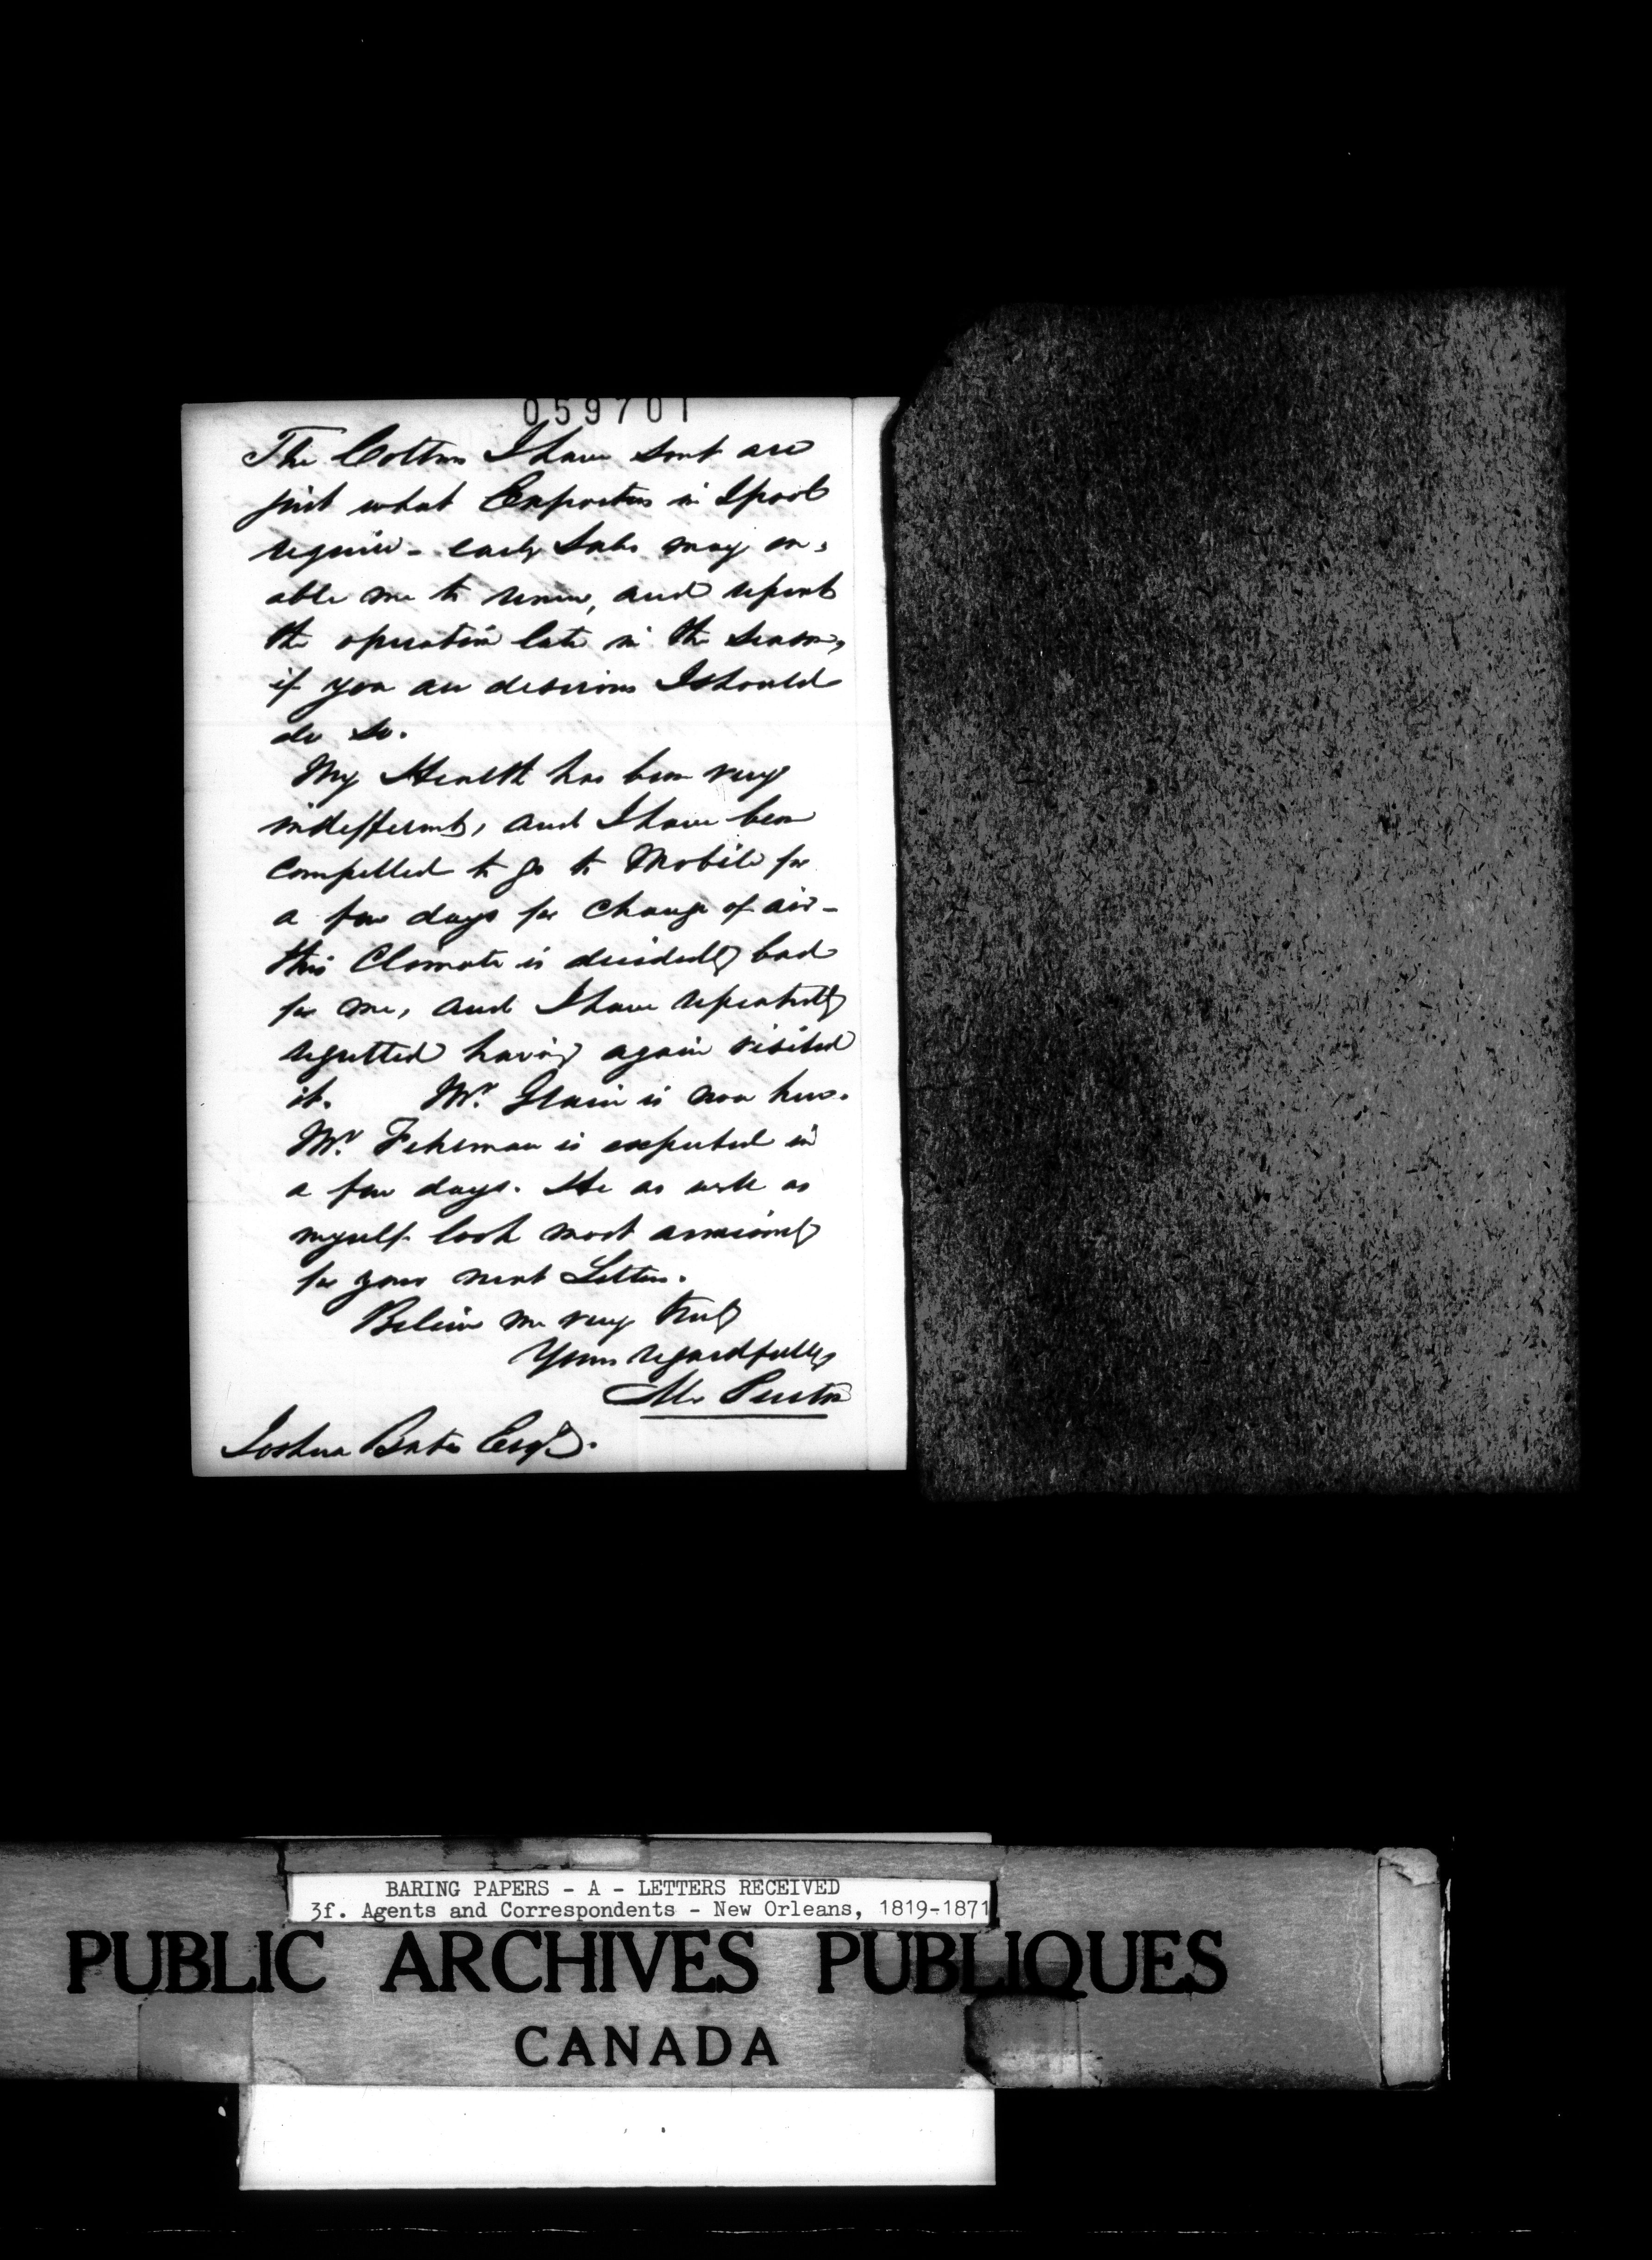 059701
The Cottons I have sent are
just what Exporters in Lpool
require - early Sales may en,
able me to renew, and repeat
the operation late in the Season,
if you are desirous I should
do so.
My Health has been very
indifferent, and I have been
compelled to go to Mobile for
a few days for change of air -
this Climate is decidedly bad
for me, and I have repeatedly
regretted having again visited
it. Mr. is now here.
Mr. is expected in
a few days. He as well as
myself look most anxiously
for your next Letters.
Believe me very truly
Yours regardfully
Joshua Bates Esqr.
BARING PAPERS - A - LETTERS RECEIVED
3f. Agents and Correspondents - New Orleans, 1819-1871
PUBLIC ARCHIVES PUBLIQUES
CANADA